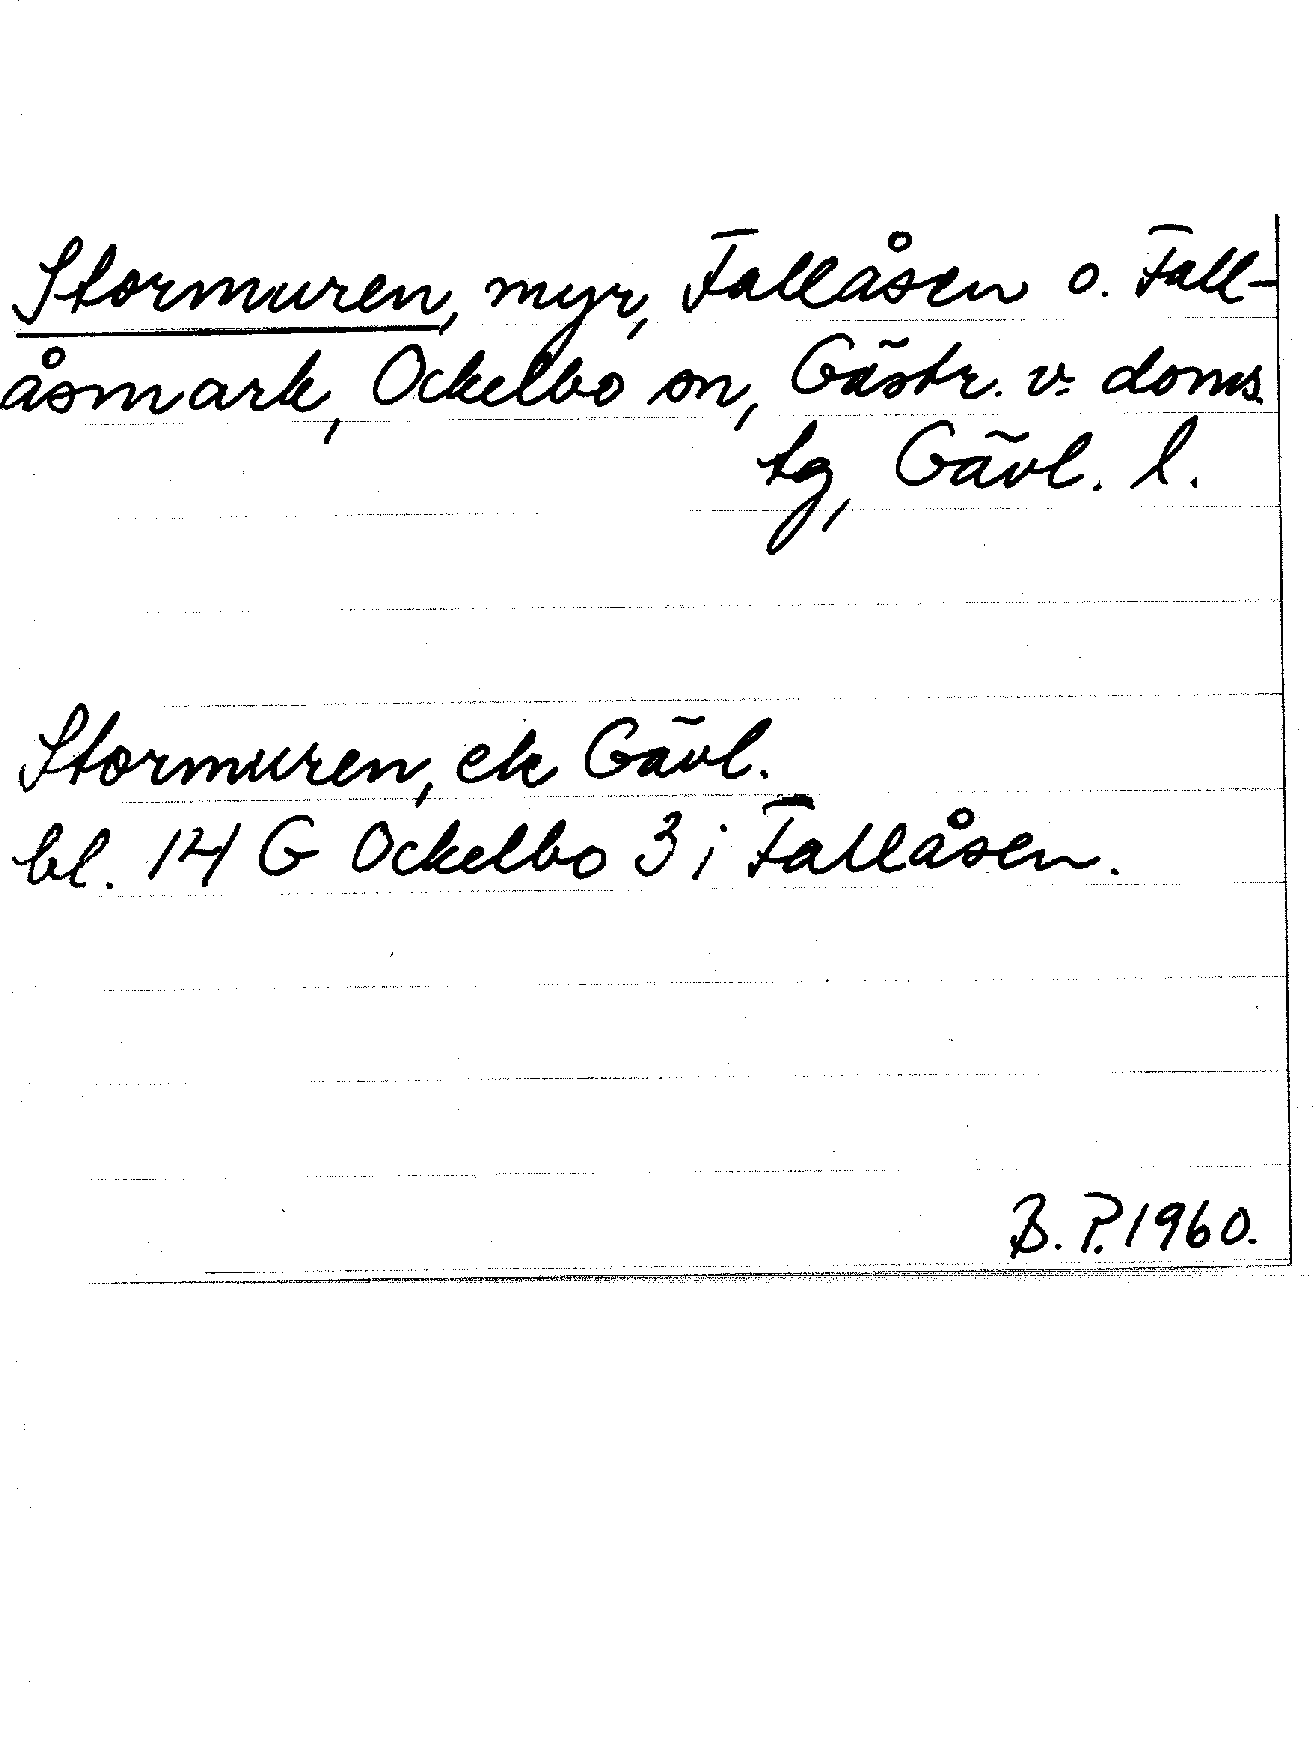 Stormuren, myr, Fallåsen o. Fall-
åsmark, Ockelbo sn, Gästr. v: doms.
tg, Gävl. l.
Stormuren, ek Gävl.
bl. 14 G Ockelbo 3 i Fallåsen.
B. P. 1960.